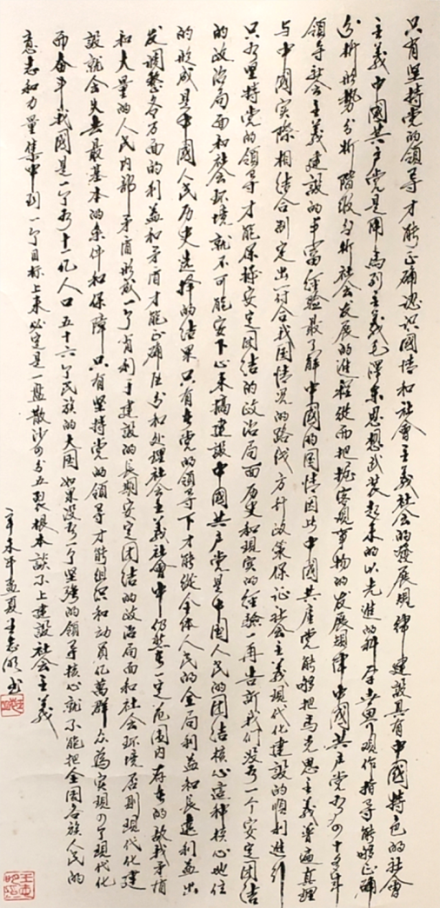 只有坚持党的领导才能正确认识国情和社會主義社会的發展規律 建設具有中國特色的社會
主義中國共产党是用馬列主義毛澤東思想武装起来的以先進的科學世界观作指导能够正确
分析形勢分析階级分析社会发展的進程從而把握客观事物的发展規律中國共产党有十多年
领导社会主義建設的丰富经验最了解中國的国情因此中国共産党能够把馬克思主義普遍真理
与中國实際相结合制定出符合我国情况的路线方针政策保证社会主義现代化建設的順利進行
只有坚持党的领导才能保持安定团结的政治局面历史和現实的经验一再告訴我们没有一个安定团结
的政治局面和社会环境就不可能安下心来搞建設中國共产党是中國人民的团结核心這种核心地位
的形成是中國人民历史選擇的结果只有在党的领导下才能從全体人民的全局利益和長遠利益出
发调整各方面的利益和矛盾才能正确区分和处理社会主義社會中仍然在一定范围内存在的敌我矛盾
和大量的人民内部矛盾形成一个有利于建設的長期安定团结的政治局面和社会环境否则现代化建
設就会失去最基本的条件和保障只有坚持党的领导才能组织和动員亿萬群众為实現四个现代化
而奋斗我國是一个有十一亿人口五十六个民族的大国如果没有一个坚强的领导核心就不能把全国各族人民的
意志和力量集中到一个目标上来必定是一盘散沙四分五裂根本談不上建設社会主義
辛未年孟夏王志明书